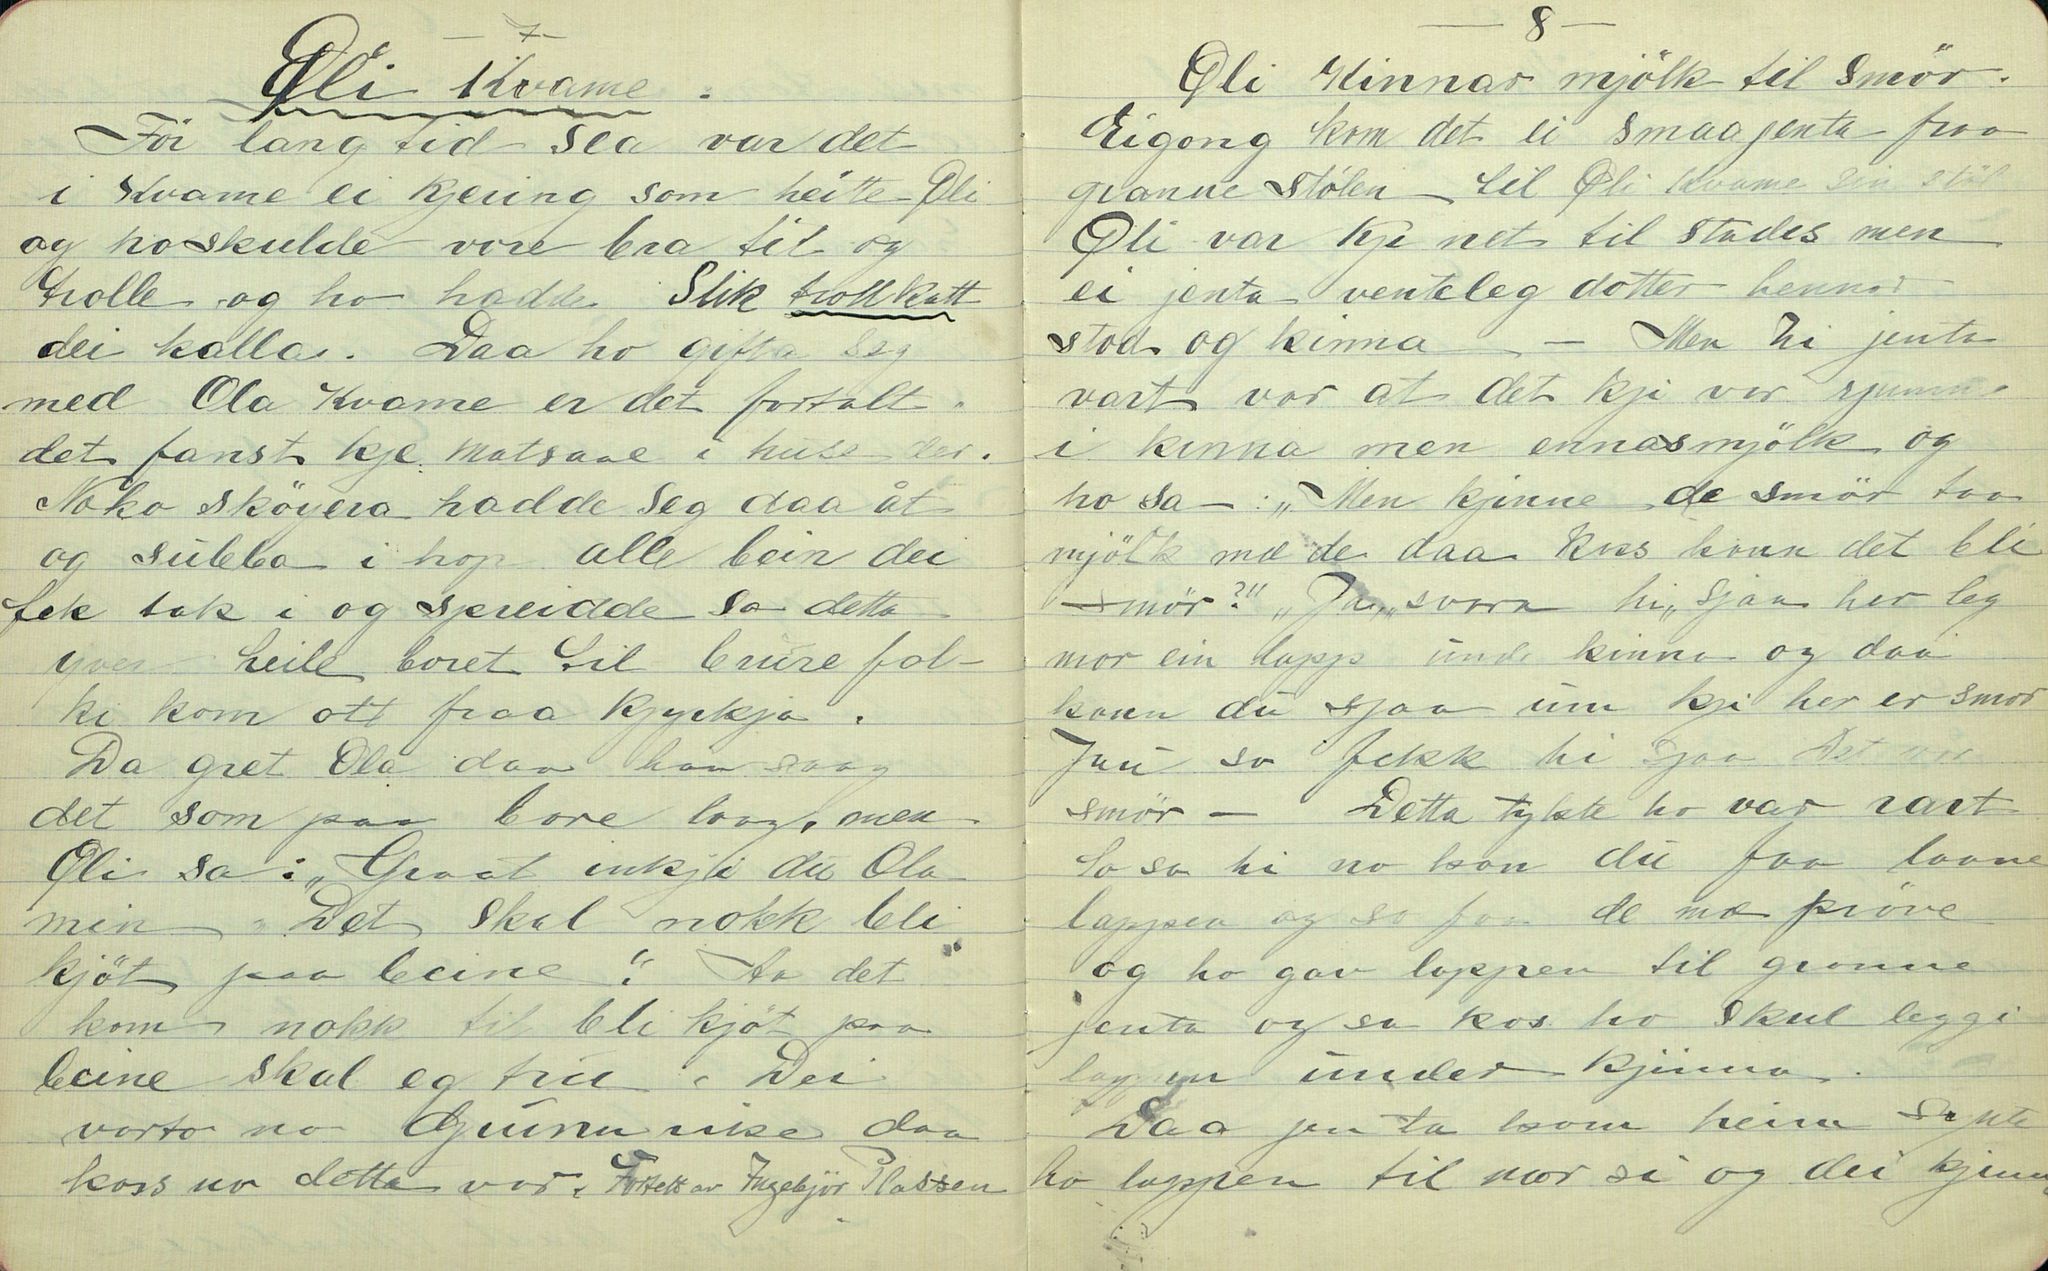 — 7 —
Øli Kvame.
För lang tid sea var det
i Kvame ei kjering som heitte Øli
og ho skulde vore bra til og
trolle og ho hadde Slik trollkatt
dei kalla. Daa ho gifta seg
med Ola Kvame er det fortalt.
det fanst kje matsaae i huse der.
Noko sköyera hadde seg daa åt
og subba i hop alle bein dei
fek tak i og spreidde so detta
yver heile boret til brure fol-
ki kom att fraa kjyrkja.
Da gret Ola daa han saag
det som paa bore laag, men
Øli sa: „Graat inkji du Ola
min. Det skal nokk bli
kjöt paa beine". Aa det
kom nokk til bli kjöt paa
beine skal eg tru. Dei
varto no Gjunn rike daa
koss no detta var. Fortett av Ingebjör Plassen
— 8 —
Øli Kinnar mjölk til Smör.
Eigong kom det ei smaajenta fraa
granne stölen til Øli Kvame sin stöl
Øli var kje net til stades men
ei jenta venteleg dotter hennar
stod og kinna — Men hi jenta
vart var at det kji var rjumme
i kinna men ennasmjölk og
ho sa: „Men kjinne de smör taa
mjölk mæ de daa koss kann det bli
smör?" „Ja„ svara hi„ sjaa her leg
mor ein lapp unde kinna og daa
kann du sjaa um kji her er smör
Jau so fekk hi sjaa Det var
smör — Detta tykte ho var rart
So sa hi no kan du faa laane
lappen og so faa de mæ pröve
og ho gav lappen til granne
jenta og sa kos ho skul leggi
lappen under kjinna.
Daa jenta kom heim synte
ho lappen til mor si og dei kjinn